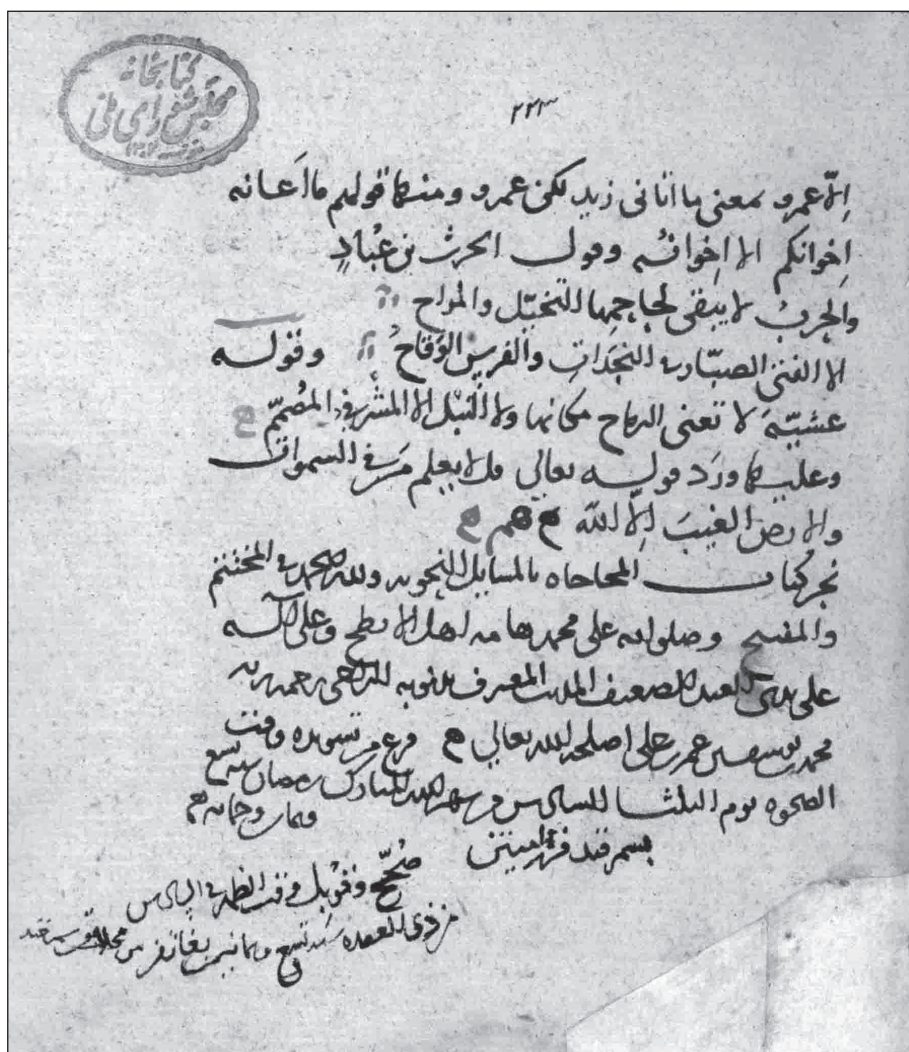 كتابخانه
مجلس شورای ملی
٢٢٣
إلّا عمرو بمعنى ما اتانى زيد لكن عمرو ومنها قولهم ما اَعانه
اِخوانكم الا اِخوانُه وقول الحرث بن عُبادٍ
والحربُ لا يبقى لجاحِمِها التخيّل والمراح
الا الفتى الصبّار فى النجَداتِ والفرسُ الوَقاحُ وقوله
عشيّةَ لا تغنى الرماح مكانها ولا النَبْل الا المشرفىّ المصُمّم
وعليها ورَد قوله تعالى قل لا يعلم من فى السموات
والارض الغيبَ اِلّا الله
نجز كتاب المحاجاه بالمسايل النحويه ولله الحمد فى المختتم
والمفتتح وصلواته على محمد هامه اهل الابطح وعلى آله
على يدى العبد الضعيف المذنب المعترف بذنوبه الراجى رحمه ربه
محمد بن يوسف بن عمر بن على اصلحه الله تعالى فرغ من تسويده وقت
الضحوه يوم الثلثا السادس من شهر الله المبارك رمضان سنه تسع
وثمانين وخمسمائه
بسمرقند
صُحّح وقوبل وقت الظهر فى السادس
من ذى القعده سنه تسع وثمانين بغاتفر من محلات سمرقند